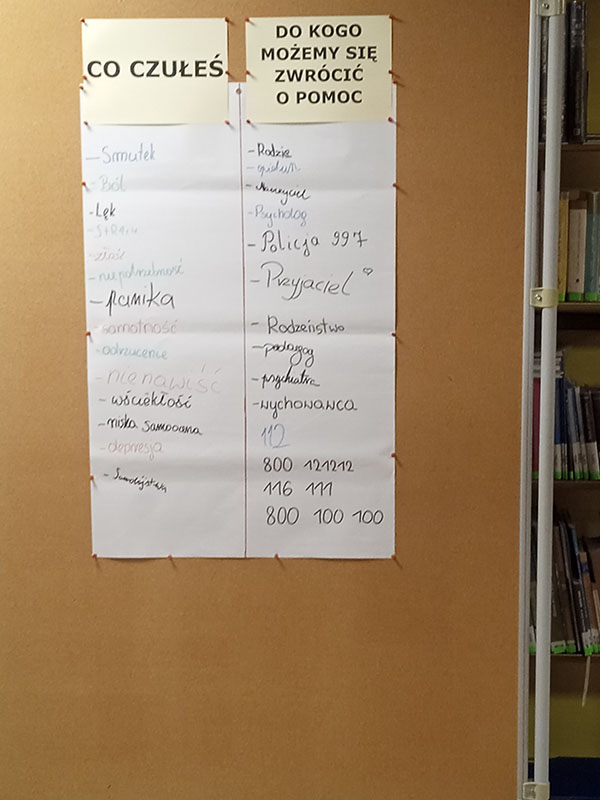 CO CZUŁEŚ
- Smutek
- Ból
- Lęk
- strach
- złość
- niepotrzebność
- panika
- samotność
- odrzucenie
- nienawiść
- wściekłość
- niska samoocena
- depresja
DO KOGO
MOŻEMY SIĘ
ZWRÓCIĆ
O POMOC
- Rodzic
- opiekun
- Nauczyciel
- Psycholog
- Policja 997
- Przyjaciel ♡
- Rodzeństwo
- pedagog
- psychiatra
- wychowawca
112
800 121212
116 111
800 100 100